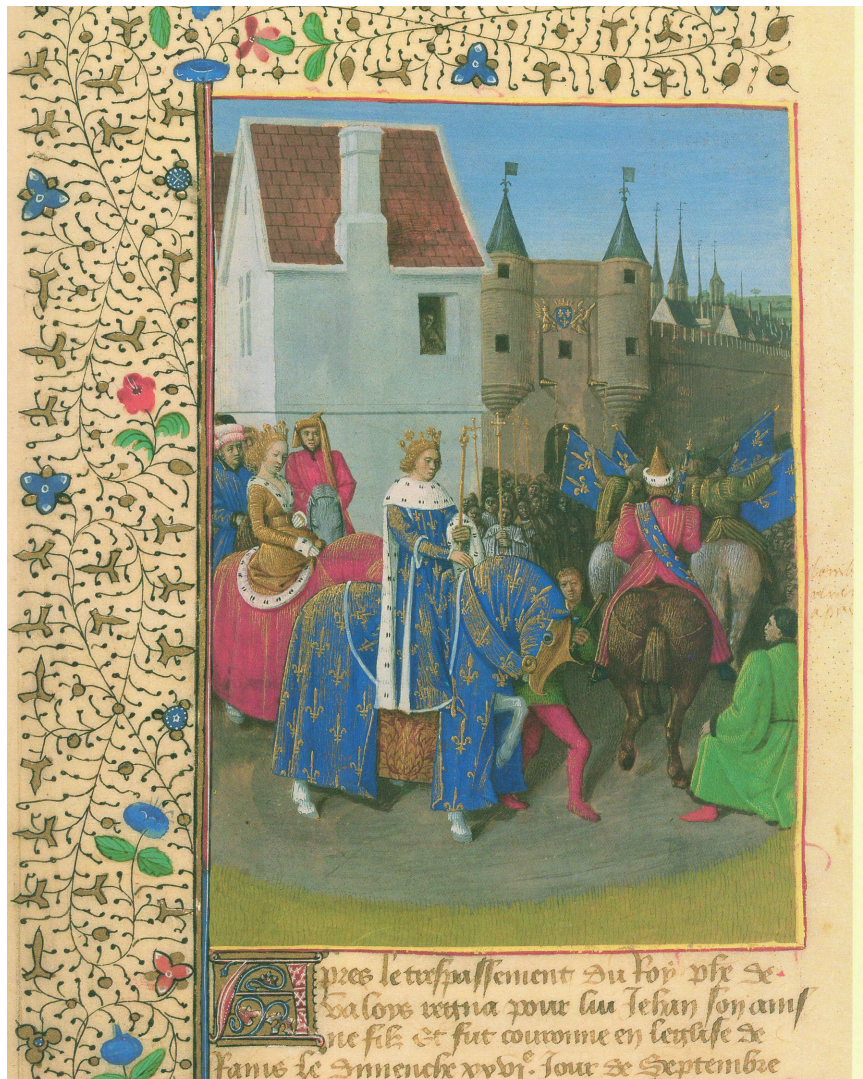 Apres le trespassement du Roy phe de
valoys regna pour luy Jehan son ains
ne filz Et fut couronne en leglise de
Rains le dimenche xxvie. Jour de Septembre